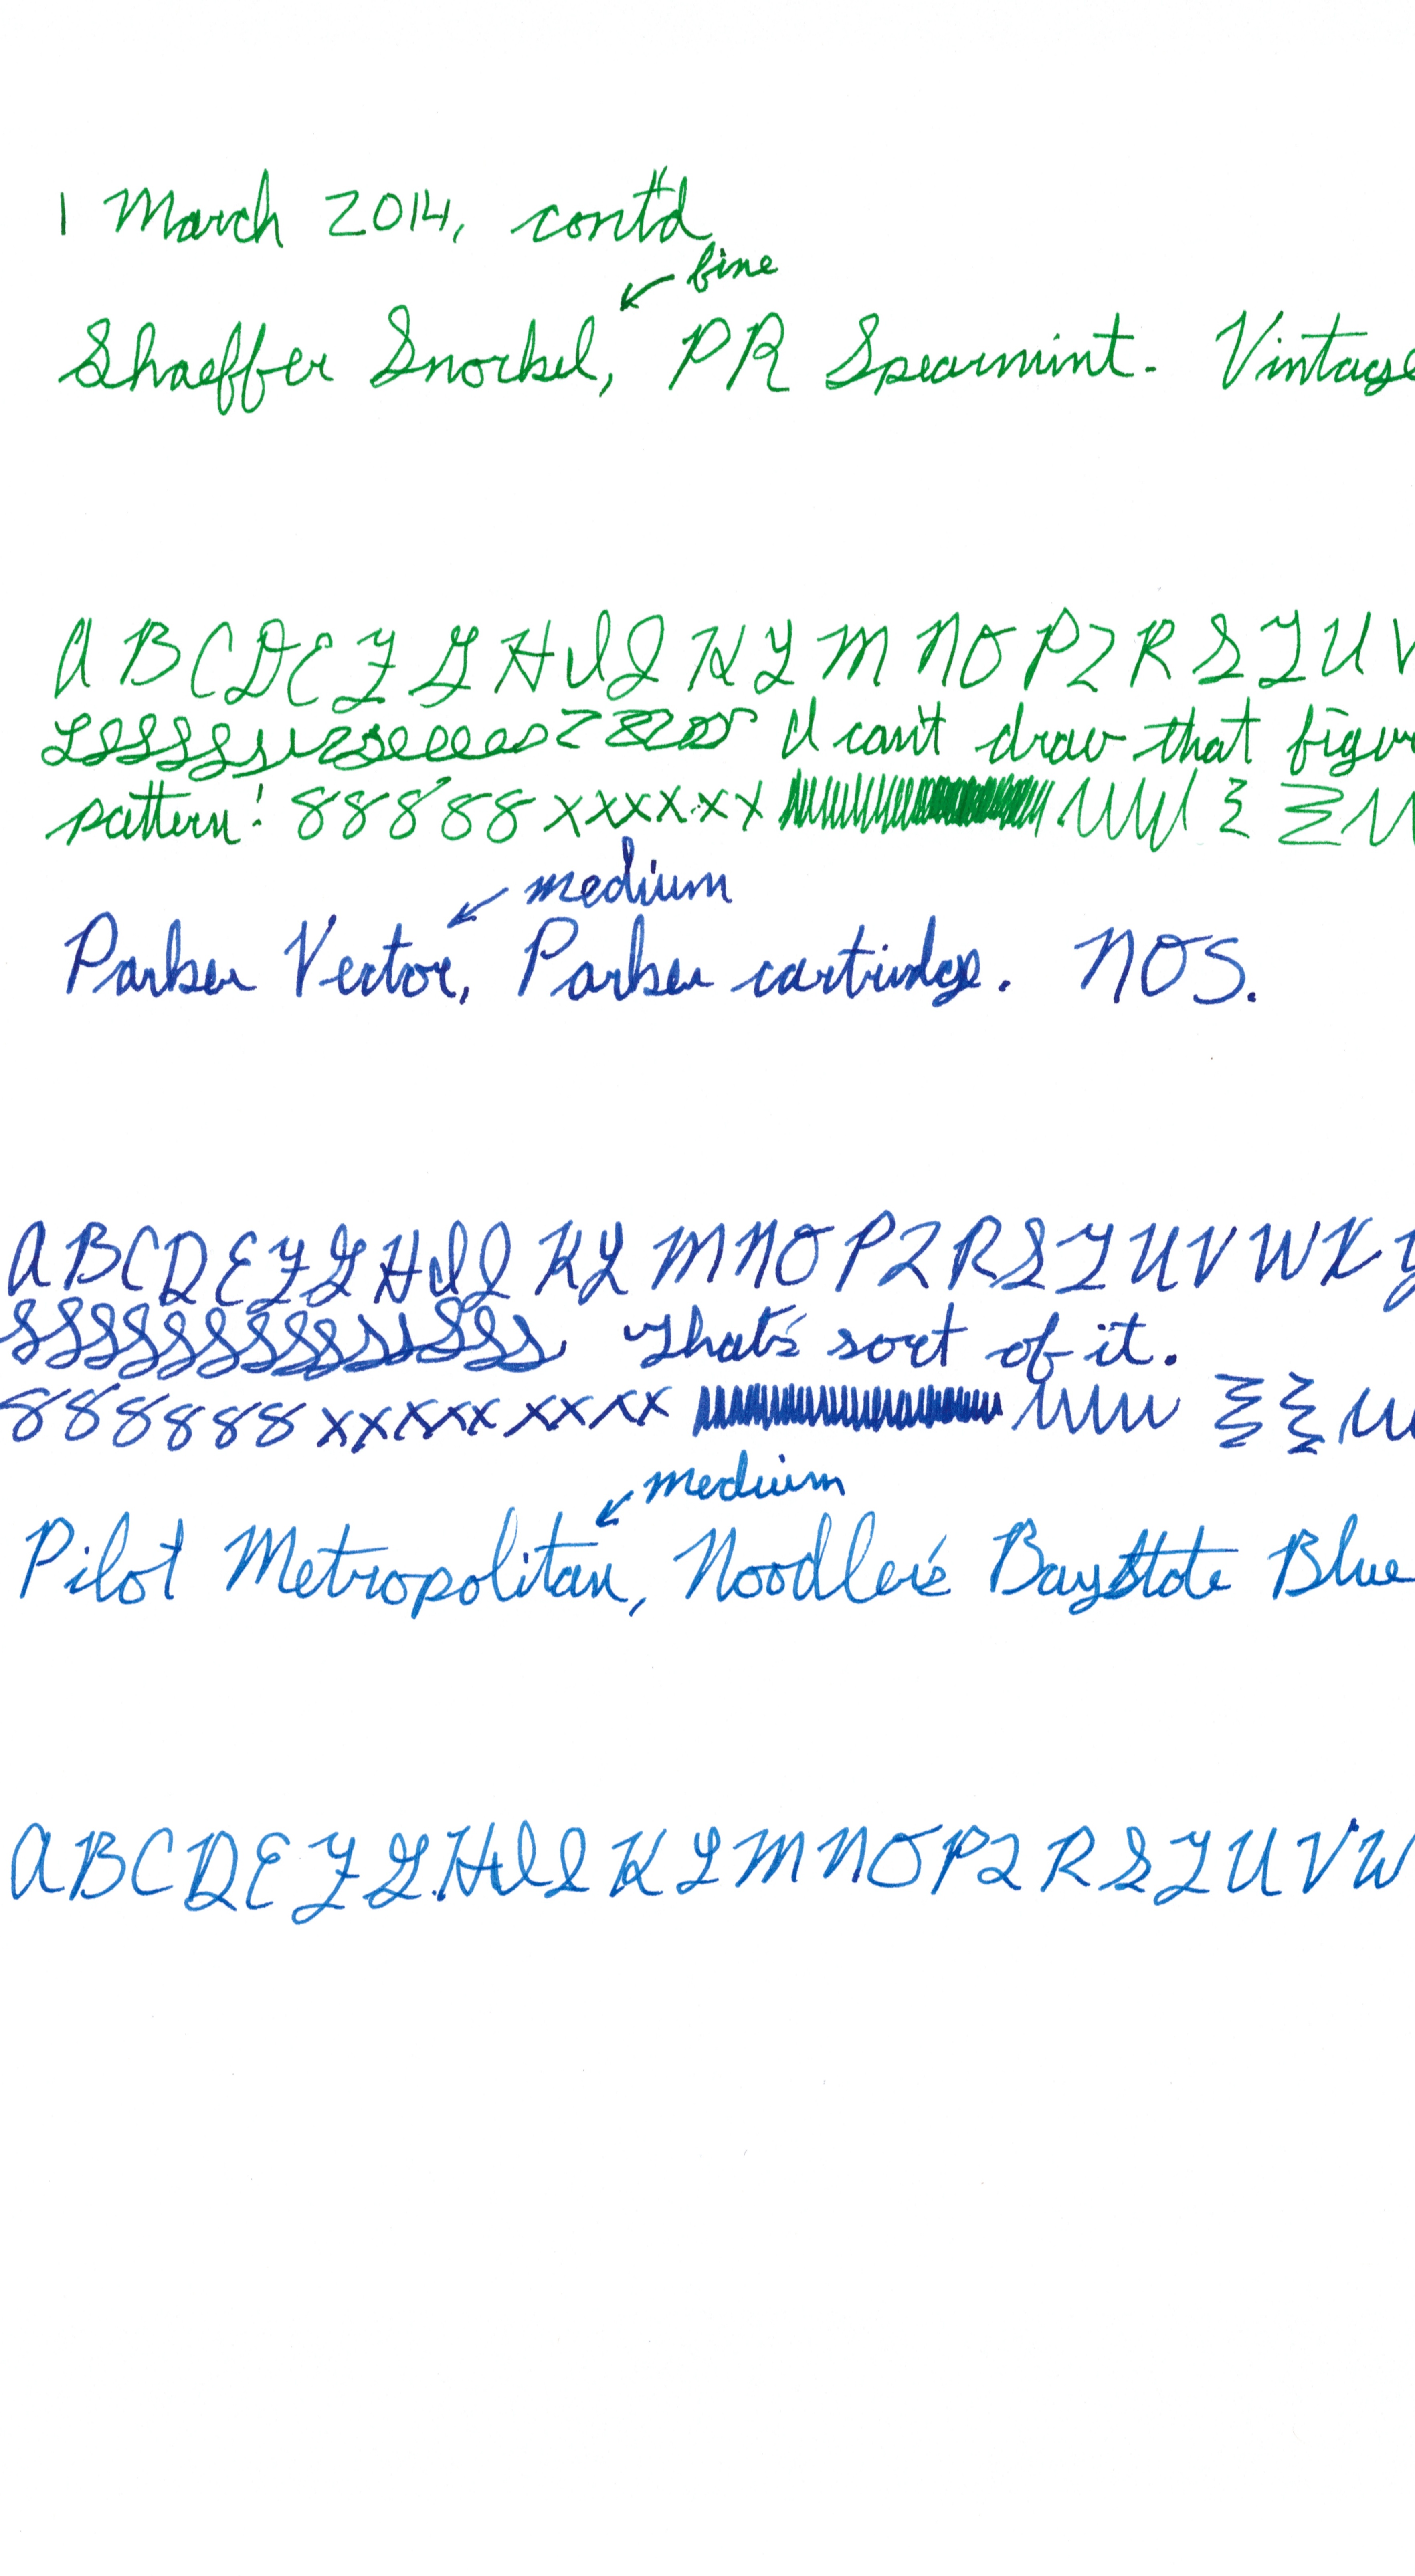 1 March 2014, cont'd
fine
Shaeffer Snorkel, PR Spearmint. Vintage
A B C D E F G H I J K L M N O P Q R S T U V
I can't draw that figur
pattern! 88888 xxxxxxx
medium
Parker Vector, Parker cartridge. NOS.
A B C D E F G H I J K L M N O P Q R S T U V W X Y
That's sort of it.
888888 xxxxxxxxx
medium
Pilot Metropolitan, Noodler's Baystate Blue
A B C D E F G H I J K L M N O P Q R S T U V W